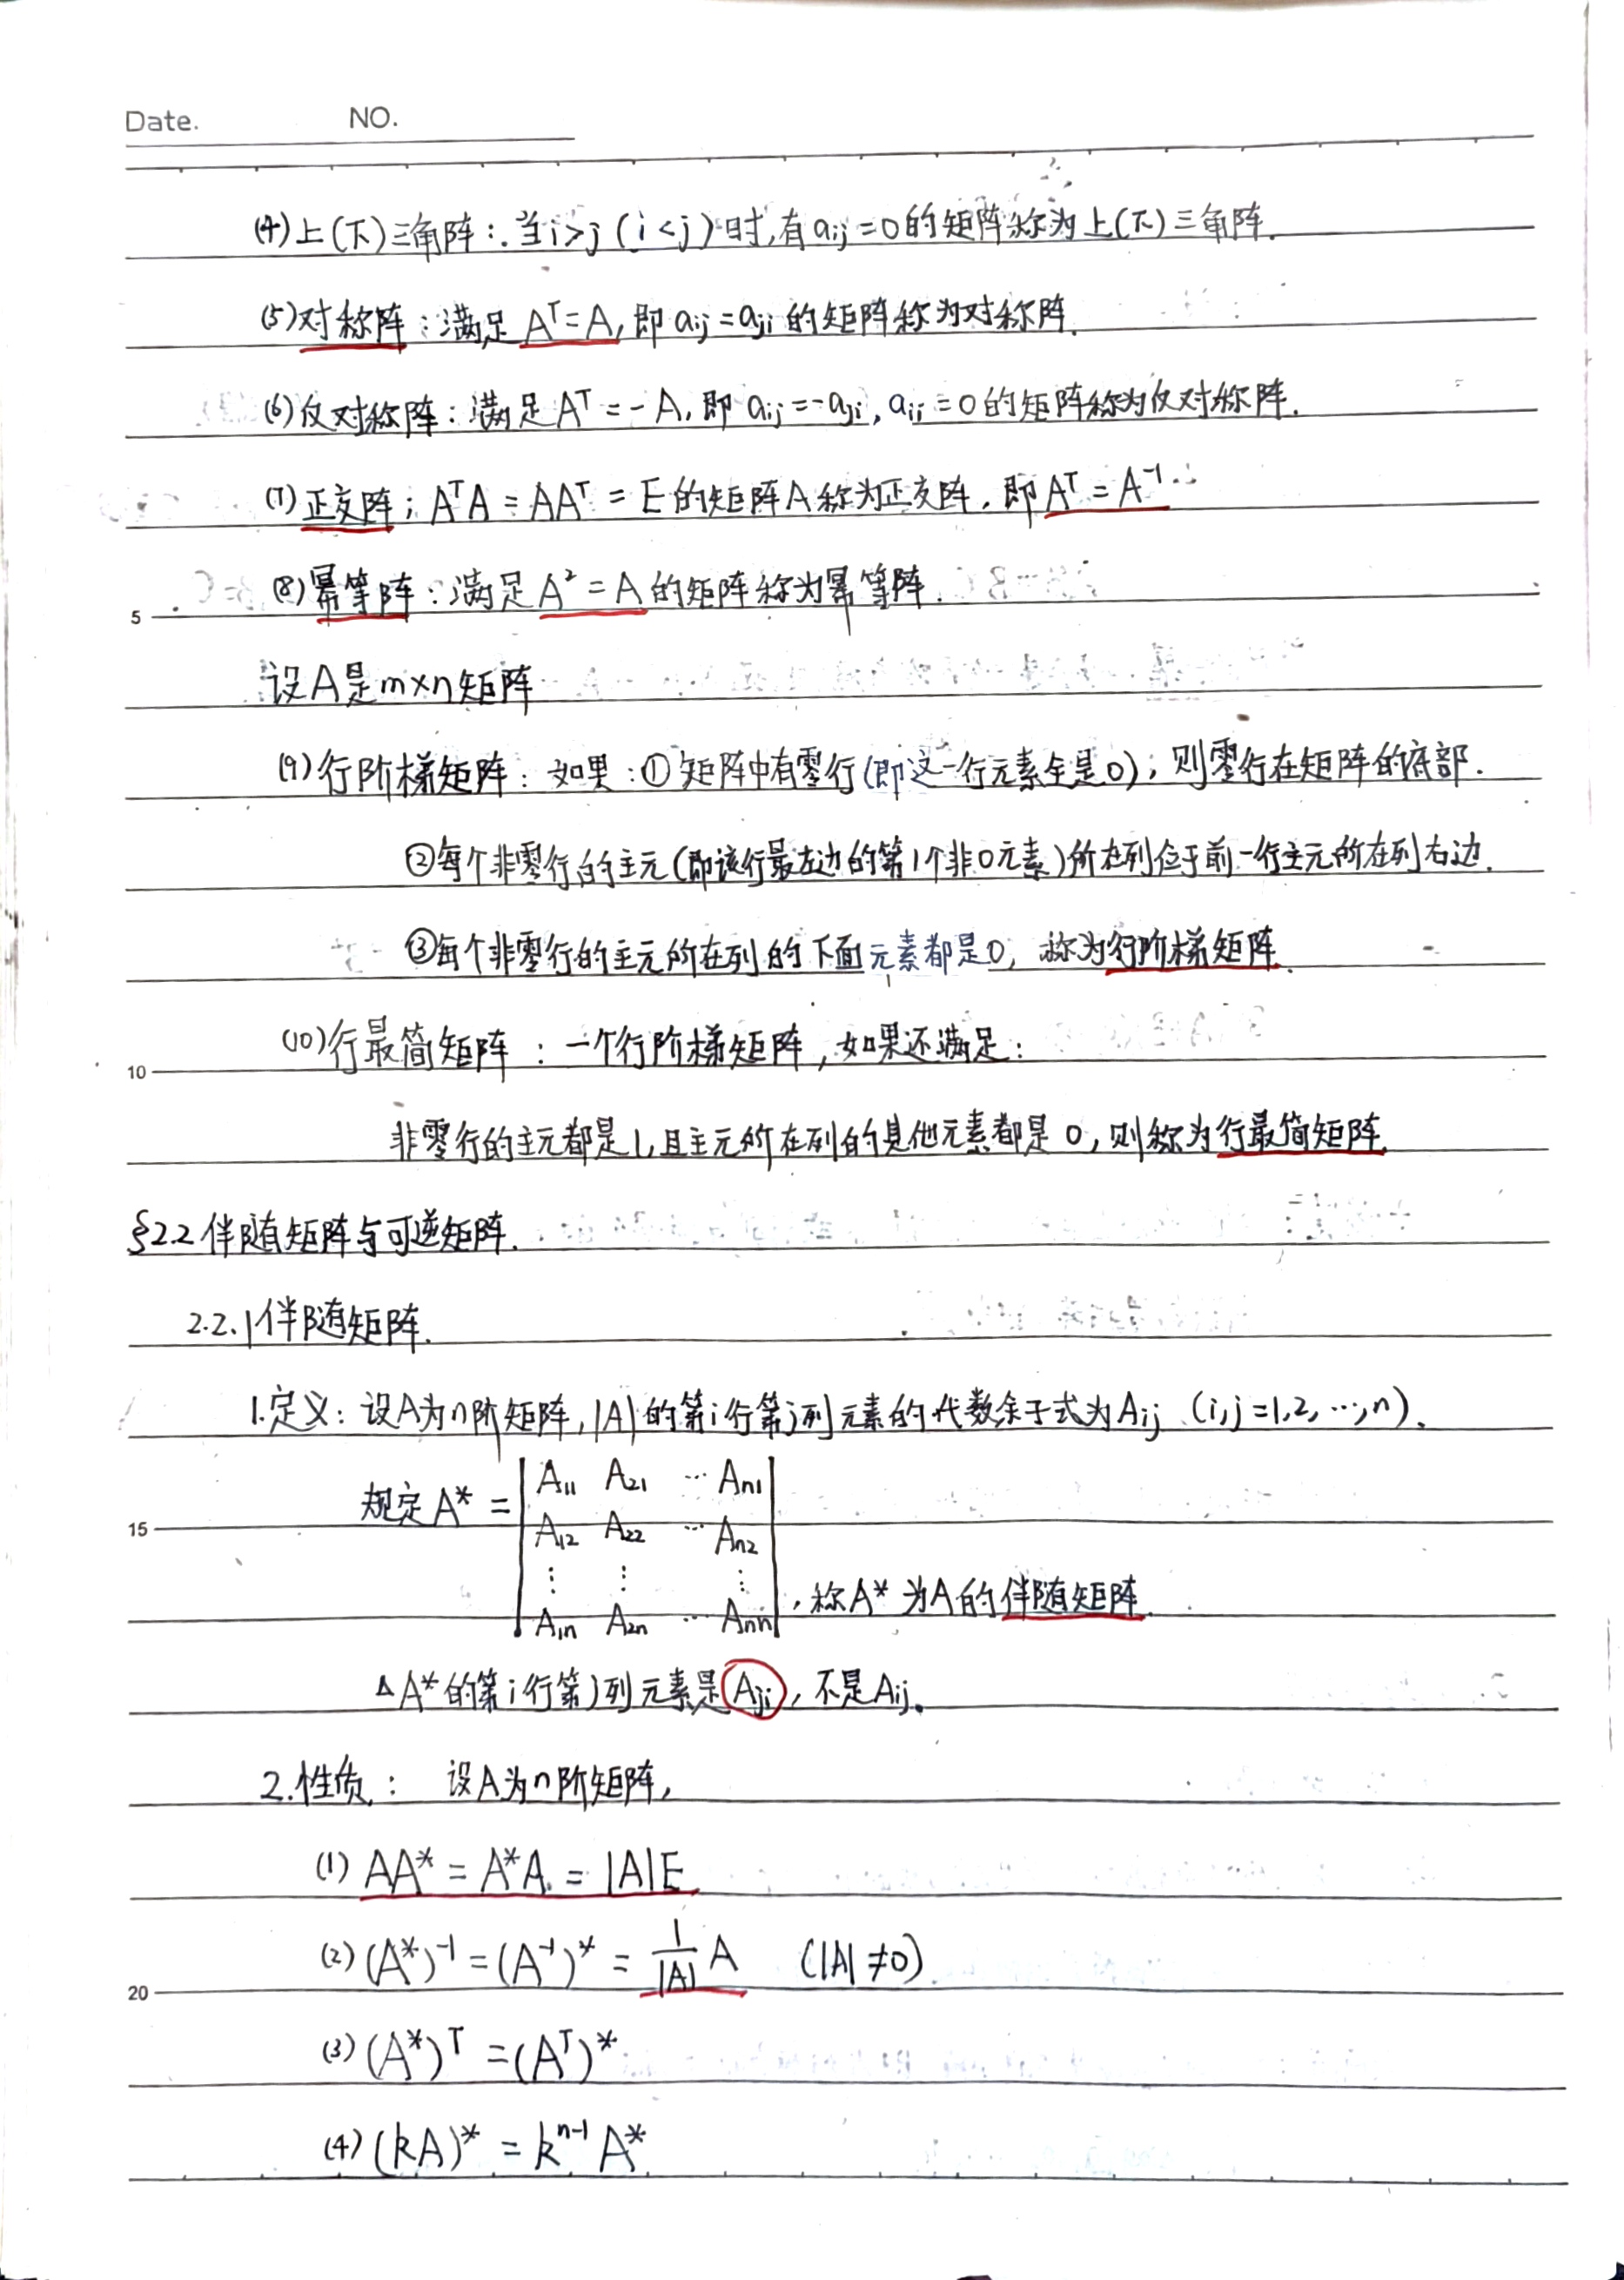 Date. NO.
(4)上(下)三角阵:当i>j(i<j)时,有aij=0的矩阵称为上(下)三角阵.
(5)对称阵:满足Aᵀ=A,即aij=aji的矩阵称为对称阵.
(6)反对称阵:满足Aᵀ=-A,即aij=-aji,aii=0的矩阵称为反对称阵.
(7)正交阵;AᵀA=AAᵀ=E的矩阵A称为正交阵,即Aᵀ=A⁻¹.
(8)幂等阵:满足A²=A的矩阵称为幂等阵.
5
设A是m×n矩阵
(9)行阶梯矩阵:如果:①矩阵中有零行(即这一行元素全是0),则零行在矩阵的底部.
②每个非零行的主元(即该行最左边的第1个非0元素)所在列位于前一行主元所在列右边.
③每个非零行的主元所在列的下面元素都是0,称为行阶梯矩阵.
(10)行最简矩阵:一个行阶梯矩阵,如果还满足:
10
非零行的主元都是1,且主元所在列的其他元素都是0,则称为行最简矩阵.
§2.2伴随矩阵与可逆矩阵.
2.2.1伴随矩阵.
1.定义:设A为n阶矩阵,|A|的第i行第j列元素的代数余子式为Aij (i,j=1,2,…,n).
规定A*= | A11 A21 … An1 |
15
A12 A22 … An2
⋮ ⋮ ⋮
A1n A2n … Ann ,称A*为A的伴随矩阵.
ΔA*的第i行第j列元素是Aji,不是Aij。
2.性质: 设A为n阶矩阵,
(1) AA*=A*A=|A|E
(2) (A*)⁻¹=(A⁻¹)*=1/|A| A (|A|≠0)
20
(3) (A*)ᵀ=(Aᵀ)*
(4) (kA)*=kⁿ⁻¹A*